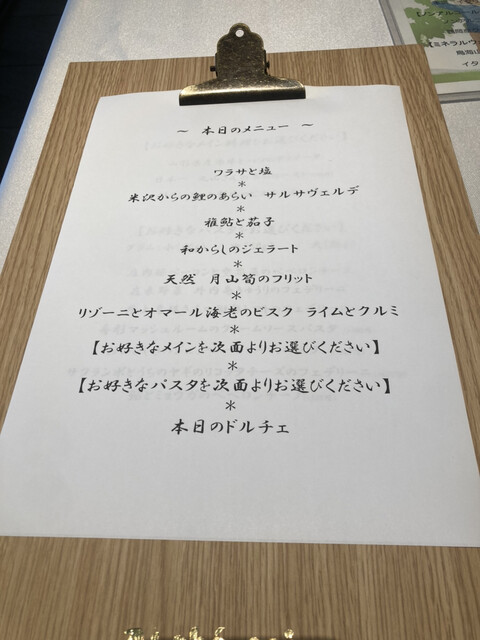 ～ 本日のメニュー ～
ワラサと塩
*
米沢からの鯉のあらい サルサヴェルデ
*
稚鮎と茄子
*
和からしのジェラート
*
天然 月山筍のフリット
*
リゾーニとオマール海老のビスク ライムとクルミ
*
【お好きなメインを次面よりお選びください】
*
【お好きなパスタを次面よりお選びください】
*
本日のドルチェ
ミネラルウ
イタ